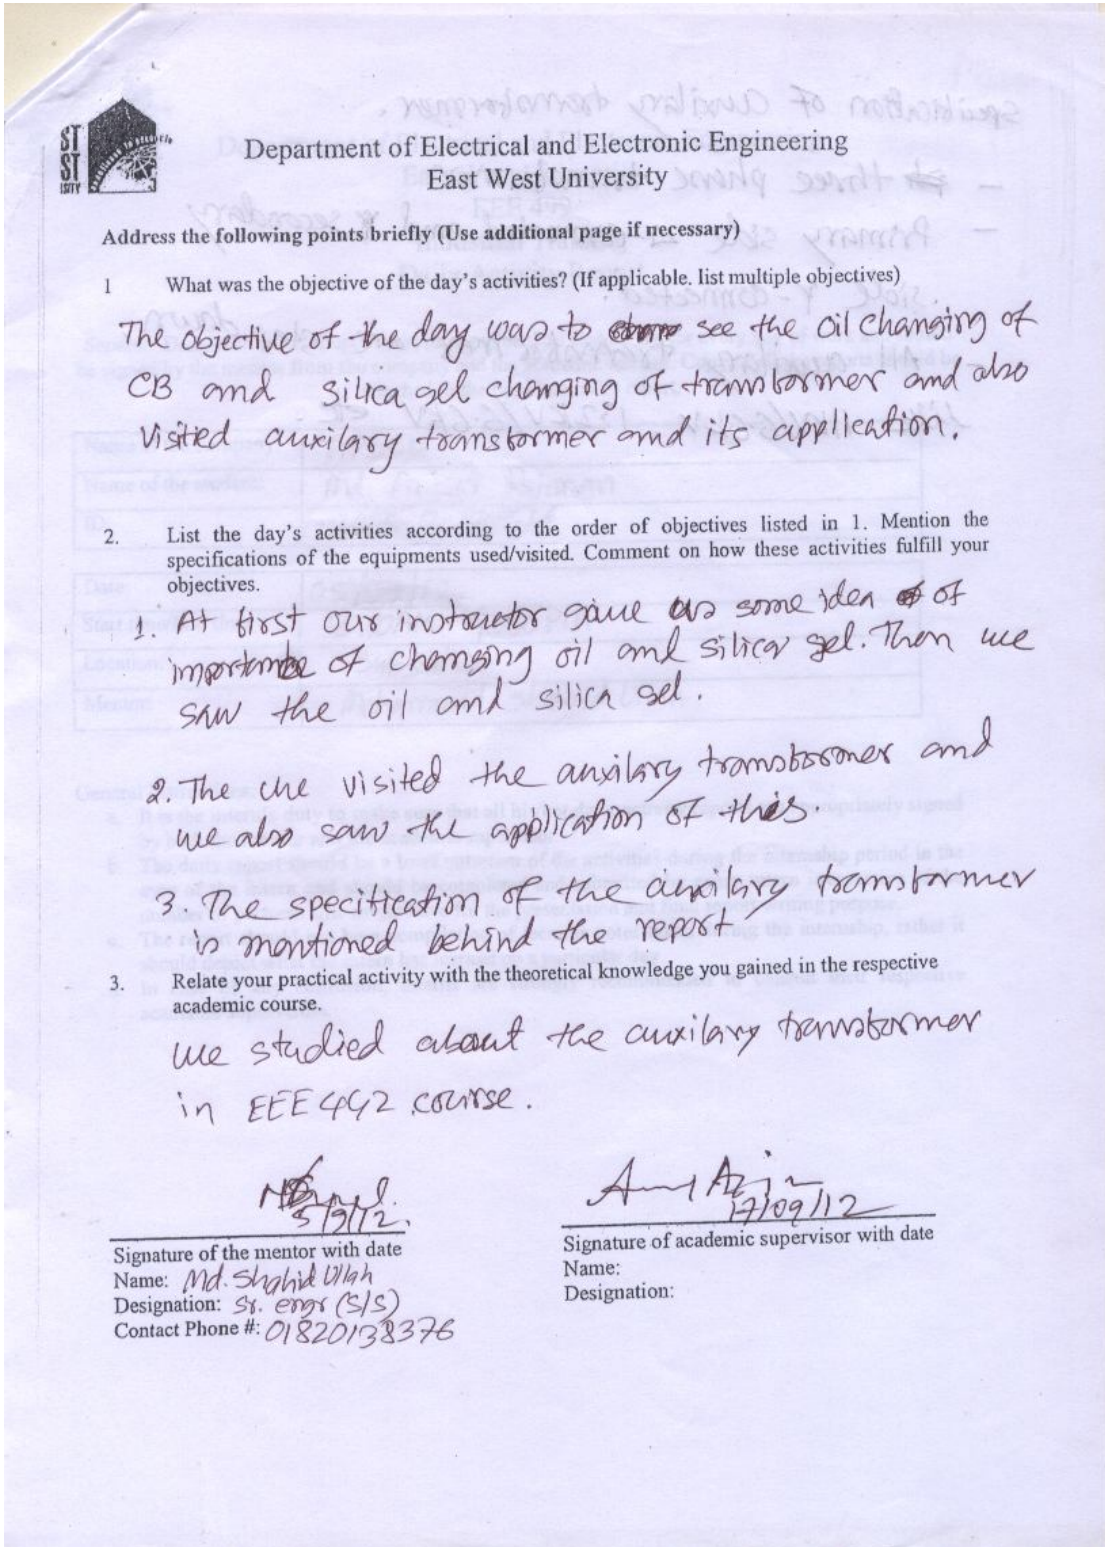 ST
ST
ISITY
Department of Electrical and Electronic Engineering
East West University
Address the following points briefly (Use additional page if necessary)
1 What was the objective of the day's activities? (If applicable. list multiple objectives)
The objective of the day was to see the oil changing of
CB and silica gel changing of transformer and also
visited auxilary transformer and its application.
2. List the day's activities according to the order of objectives listed in 1. Mention the
specifications of the equipments used/visited. Comment on how these activities fulfill your
objectives.
1. At first our instructor gave us some idea of
importance of changing oil and silica gel. Then we
saw the oil and silica gel.
2. The we visited the auxilary transformer and
we also saw the application of this
3. The specification of the auxilary transformer
is mentioned behind the report
3. Relate your practical activity with the theoretical knowledge you gained in the respective
academic course.
we studied about the auxilary transformer
in EEE 442 course.
5/9/12.
17/09/12
Signature of the mentor with date
Name: Md. Shahid Ullah
Designation: Sr. engr (S/S)
Contact Phone #: 01820138376
Signature of academic supervisor with date
Name:
Designation: